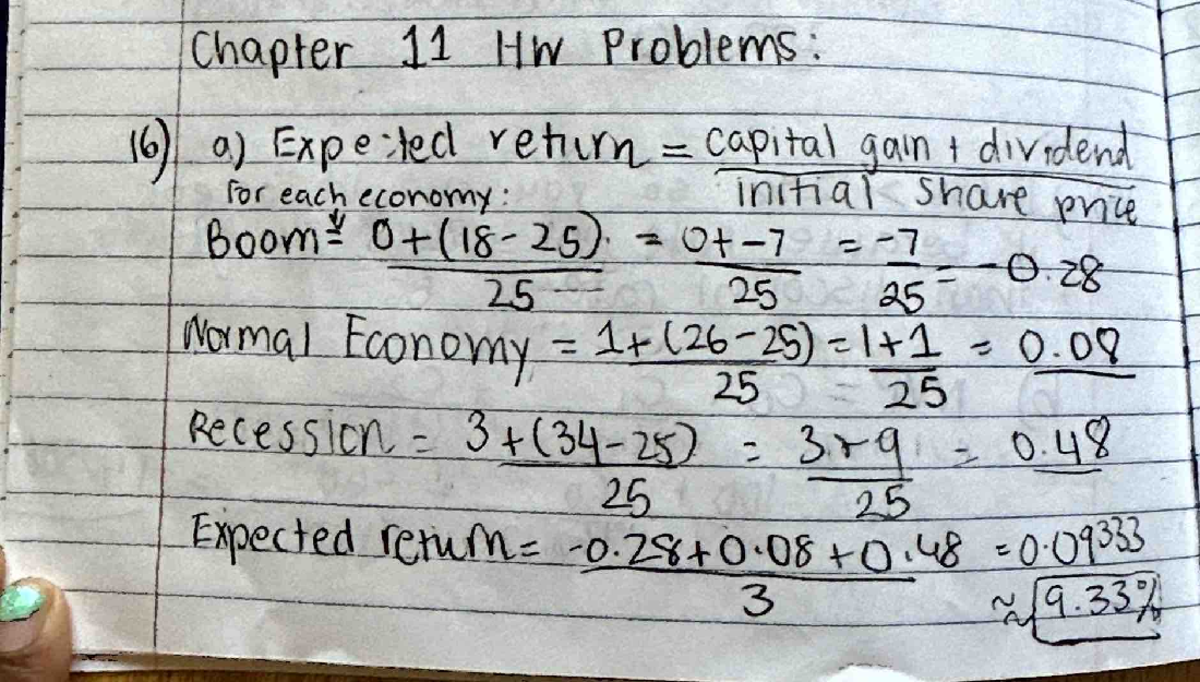 Chapter 11 HW Problems:
16) a) Expected return = capital gain + dividend
initial share price
for each economy:
Boom = 0+(18-25) = 0+-7 = -7 = -0.28
25 25 25
Normal Economy = 1+(26-25) = 1+1 = 0.08
25 25
Recession = 3+(34-25) = 3+9 = 0.48
25 25
Expected return = -0.28+0.08+0.48 = 0.09333
3 ≈ 9.33%